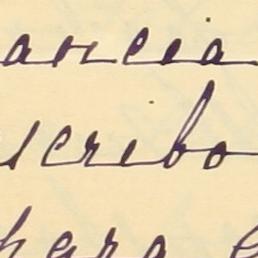 ancia
scribo
para e